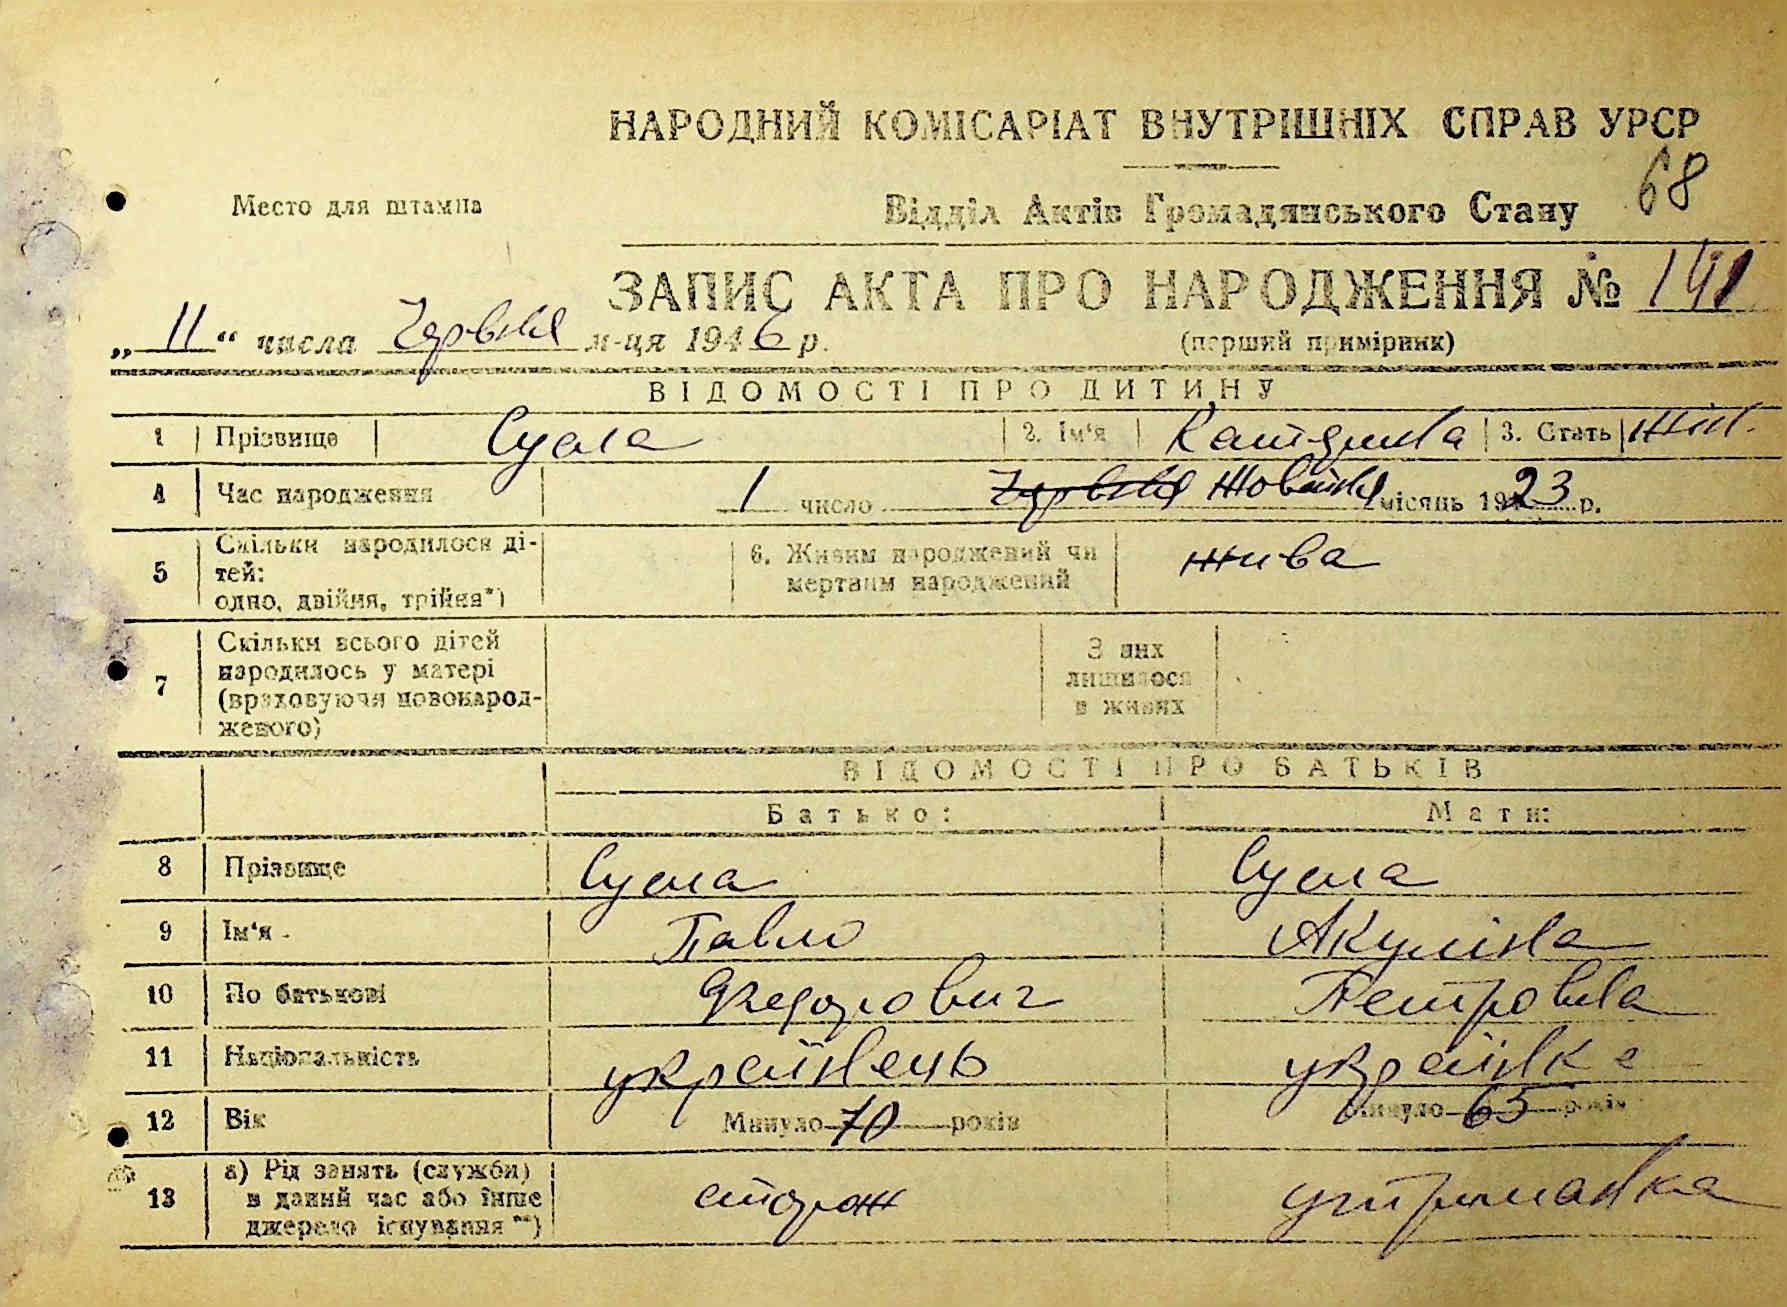 НАРОДНИЙ КОМІСАРІАТ ВНУТРІШНІХ СПРАВ УРСР
68
Место для штампа
Відділ Актів Громадянського Стану
ЗАПИС АКТА ПРО НАРОДЖЕННЯ № 191
„11“ числа Червня м-ця 1946 р.
(перший примірник)
ВІДОМОСТІ ПРО ДИТИНУ
1 Прізвище Сусла 2. Ім'я Катерина 3. Стать жін.
4 Час народження 1 число Червня Жовтня місяць 1923 р.
5 Скільки народилося дітей: одно, двійня, трійня*) 6. Живим народжений чи мертвим народжений жива
7 Скільки всього дітей народилось у матері (враховуючи новонародженого) З них лишилося в живих
ВІДОМОСТІ ПРО БАТЬКІВ
Батько: Мати:
8 Прізвище Сусла Сусла
9 Ім'я Павло Акуліна
10 По батькові Федорович Петровна
11 Національність українець українка
12 Вік Минуло 70 років Минуло 65 років
13 а) Рід занять (служби) в даний час або інше джерело існування**) сторож утриманка